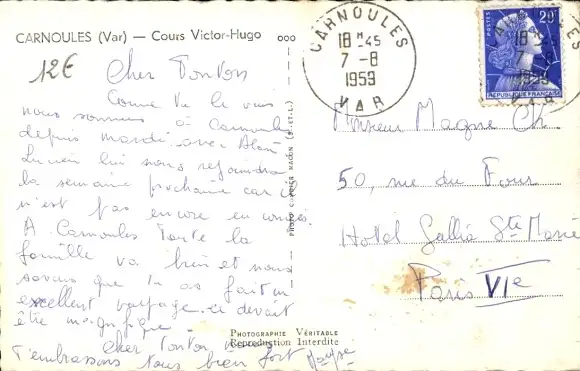 CARNOULES (Var) — Cours Victor-Hugo
12€
Cher Tonton
Comme tu le vois
nous sommes à Carnoules
depuis mardi avec Alain
Lucien lui nous rejoindra
la semaine prochaine car il
n'est pas encore en congés.
A Carnoules toute la
famille va bien et nous
savons que tu as fait un
excellent voyage. ce devait
être magnifique.
Cher Tonton nous
t'embrassons tous bien fort
PHOTO COMBIER MACON (S.-ET-L.)
PHOTOGRAPHIE VÉRITABLE
Reproduction Interdite
CARNOULES
18 H 45
7 - 8
1959
VAR
POSTES
20F
REPUBLIQUE FRANÇAISE
Monsieur Magne Ch.
50, rue du Four
Hotel Gallia Ste Marie
Paris VIe